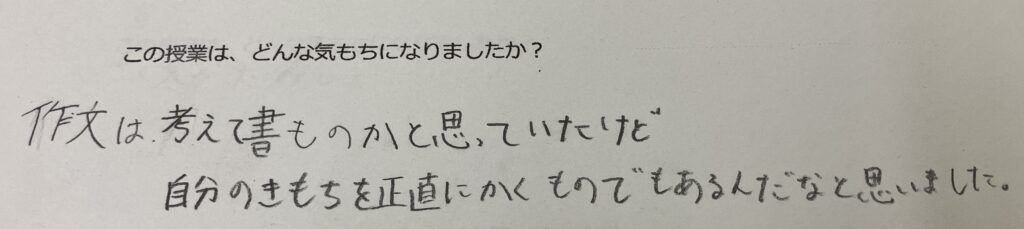 この授業は、どんな気もちになりましたか？
作文は考えて書ものかと思っていたけど
自分のきもちを正直にかくものでもあるんだなと思いました。